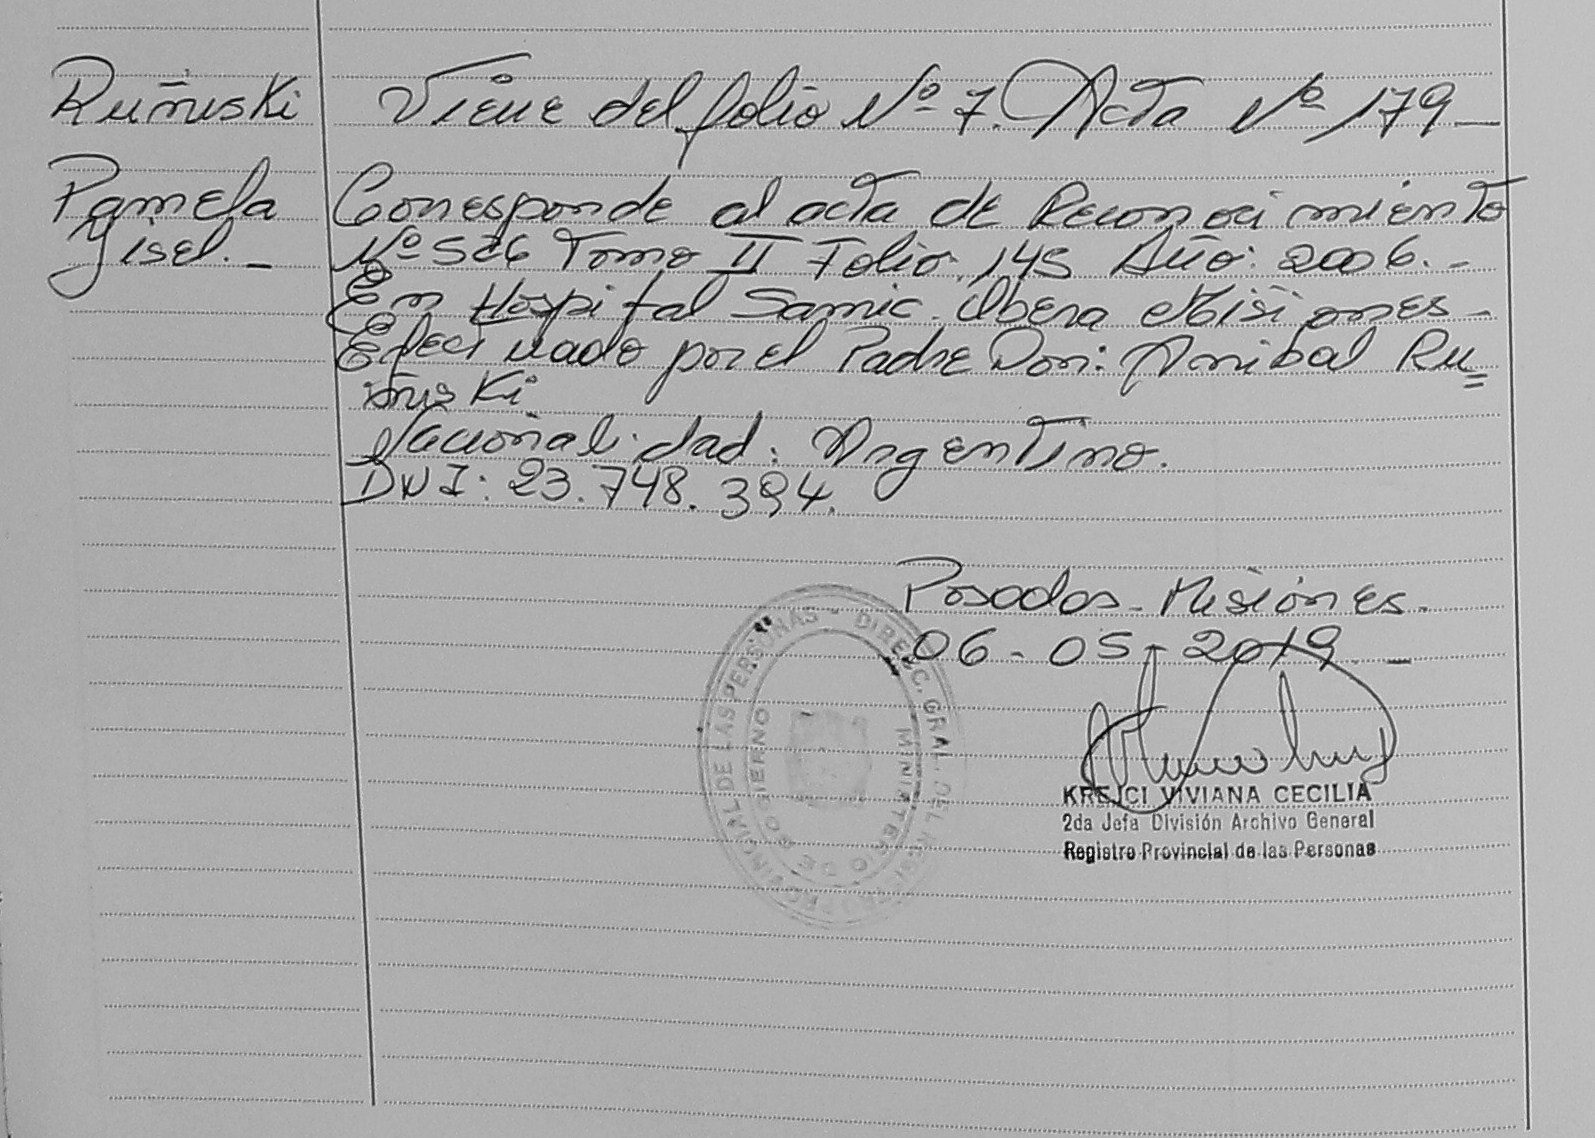 Ruñuski
Viene del folio Nº 7. Acta Nº 179
Pamela
Yisel. _
Corresponde al acta de Reconocimiento
Nº 526 Tomo II Folio 145 Año: 2006. -
En Hospital Samic. Obera Misiones -
Efectuado por el Padre Don: Anibal Ru=
ñuski
Nacionalidad: Argentino.
DNI: 23.748.394.
Posadas - Misiones.
06 - 05 - 2019. -
DIREC. GRAL. DEL REGISTRO PROVINCIAL DE LAS PERSONAS -
MINISTERIO DE GOBIERNO
KREJCI VIVIANA CECILIA
2da Jefa División Archivo General
Registro Provincial de las Personas